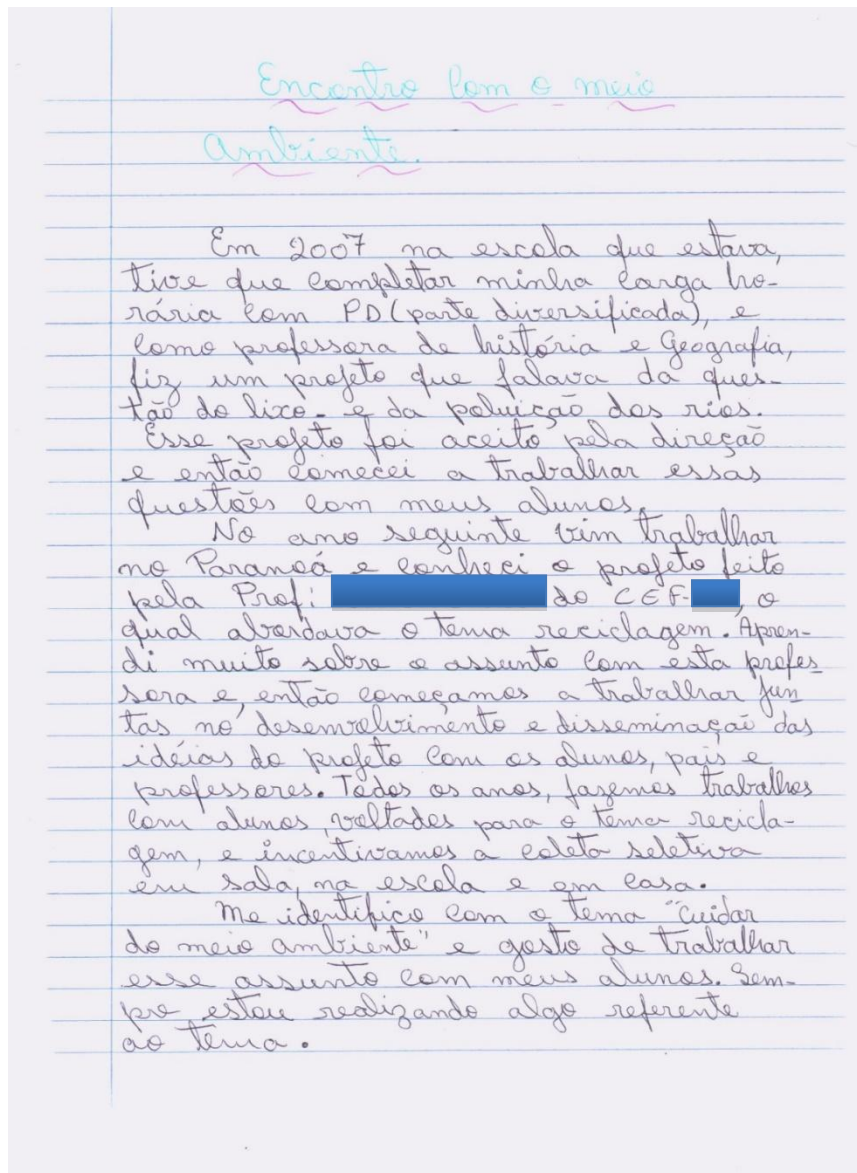 Encontro com o meio
Ambiente.
Em 2007 na escola que estava,
tive que completar minha carga ho-
rária com PD (parte diversificada), e
como professora de história e Geografia,
fiz um projeto que falava da ques-
tão do lixo - e da poluição dos rios.
Esse projeto foi aceito pela direção
e então comecei a trabalhar essas
questões com meus alunos.
No ano seguinte vim trabalhar
no Paranoá e conheci o projeto feito
pela Prof: do CEF- , o
qual abordava o tema reciclagem. Apren-
di muito sobre o assunto com esta profes
sora e, então começamos a trabalhar jun
tas no desenvolvimento e disseminação das
idéias do projeto com os alunos, pais e
professores. Todos os anos, fazemos trabalhos
com alunos, voltados para o tema recicla-
gem, e incentivamos a coleta seletiva
em sala, na escola e em casa.
Me identifico com o tema "cuidar
do meio ambiente" e gosto de trabalhar
esse assunto com meus alunos. Sem-
pre estou realizando algo referente
ao tema.